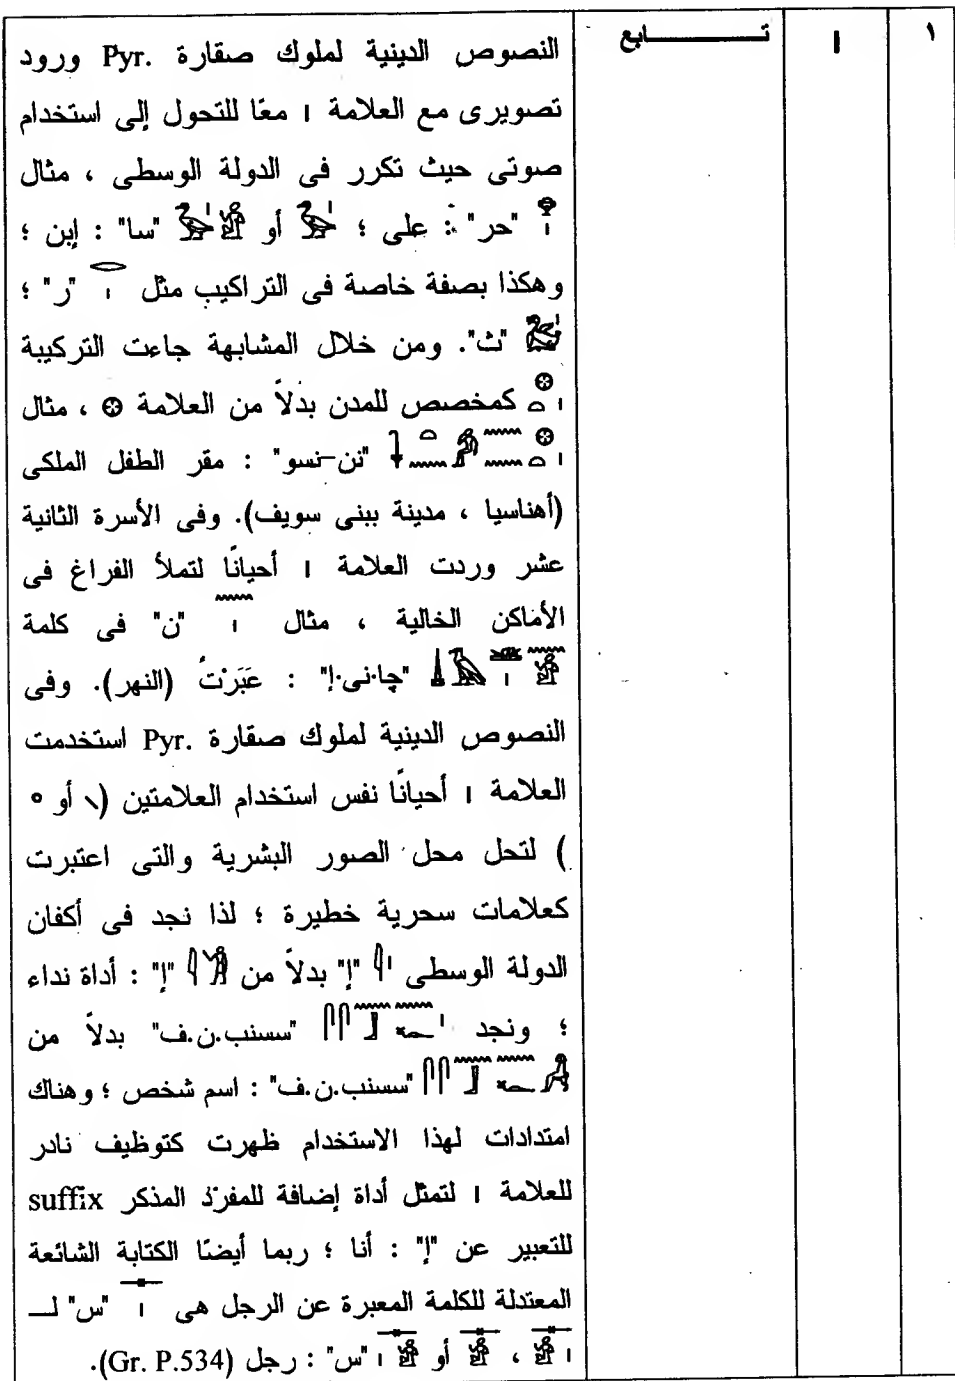 ١ ׀ تـــــــابع
النصوص الدينية لملوك صقارة Pyr. ورود
تصويرى مع العلامة ׀ معًا للتحول إلى استخدام
صوتى حيث تكرر فى الدولة الوسطى ، مثال
𓁷𓏤 "حر" : على ؛ 𓅭𓏤 أو 𓅭𓏤𓀀 "سا" : إبن ؛
وهكذا بصفة خاصة فى التراكيب مثل 𓂋𓏤 "ر" ؛
"ث". ومن خلال المشابهة جاءت التركيبة
𓊖𓏏𓏤 كمخصص للمدن بدلاً من العلامة 𓊖 ، مثال
"نن-نسو" : مقر الطفل الملكى
(أهناسيا ، مدينة ببنى سويف). وفى الأسرة الثانية
عشر وردت العلامة ׀ أحيانًا لتملأ الفراغ فى
الأماكن الخالية ، مثال 𓈖𓏤 "ن" فى كلمة
"چا.نى.إ" : عَبَرْتُ (النهر). وفى
النصوص الدينية لملوك صقارة Pyr. استخدمت
العلامة ׀ أحيانًا نفس استخدام العلامتين (\ أو ه
) لتحل محل الصور البشرية والتى اعتبرت
كعلامات سحرية خطيرة ؛ لذا نجد فى أكفان
الدولة الوسطى 𓇋𓏤 "إ" بدلاً من 𓇋𓀁 "إ" : أداة نداء
؛ ونجد "سسنب.ن.ف" بدلاً من
"سسنب.ن.ف" : اسم شخص ؛ وهناك
امتدادات لهذا الاستخدام ظهرت كتوظيف نادر
للعلامة ׀ لتمثل أداة إضافة للمفرد المذكر suffix
للتعبير عن "إ" : أنا ؛ ربما أيضًا الكتابة الشائعة
المعتدلة للكلمة المعبرة عن الرجل هى 𓊃𓏤 "س" لــ
𓊃𓀀𓏤 ، 𓊃𓀀 أو 𓊃𓏤𓀀 "س" : رجل (Gr. P.534).